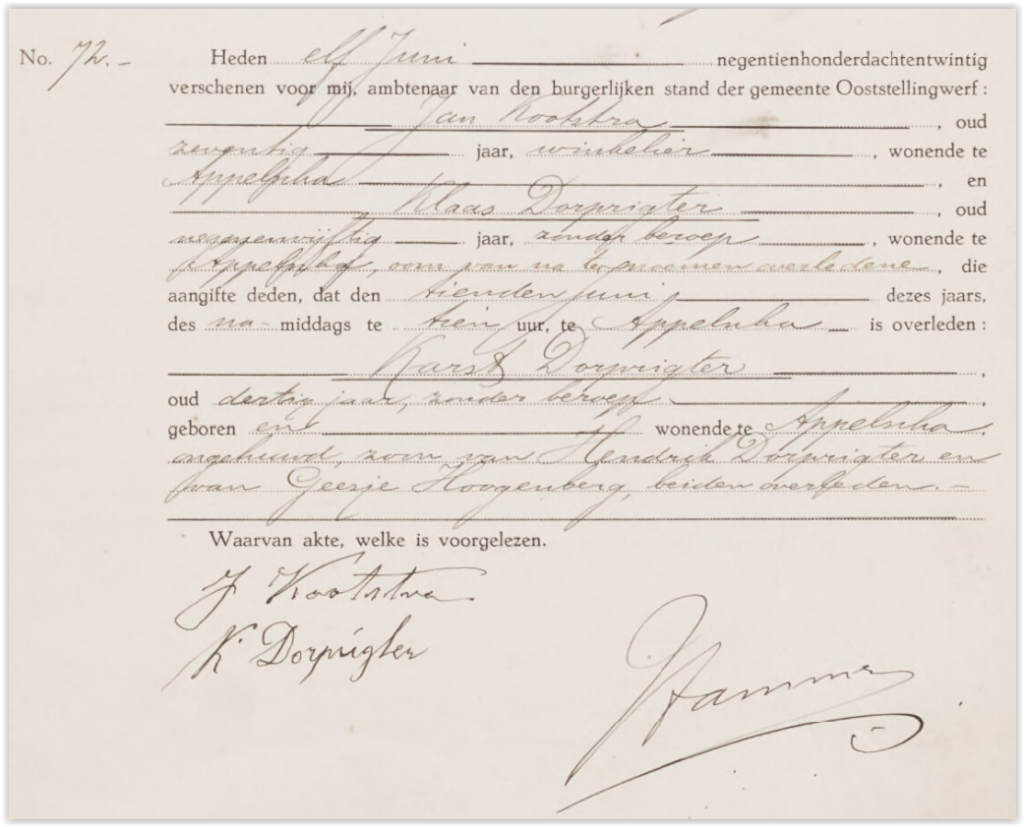 No. 72.- Heden elf Juni negentienhonderdachtentwintig
verschenen voor mij, ambtenaar van den burgerlijken stand der gemeente Ooststellingwerf:
Jan Kootstra, oud
zeventig jaar, winkelier, wonende te
Appelscha, en
Klaas Dorprigter, oud
negenenvijftig jaar, zonder beroep, wonende te
Appelscha, oom van na te noemen overledene, die
aangifte deden, dat den tienden Juni dezes jaars,
des na-middags te tien uur, te Appelscha is overleden:
Karst Dorprigter,
oud dertig jaar, zonder beroep,
geboren en wonende te Appelscha,
ongehuwd, zoon van Hendrik Dorprigter en
van Geesje Hoogenberg, beiden overleden.-
Waarvan akte, welke is voorgelezen.
J Kootstra
K. Dorprigter